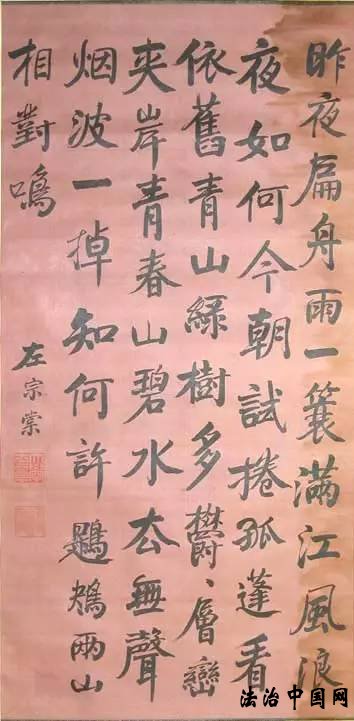 昨夜扁舟雨一蓑滿江風浪
夜如何今朝試捲孤蓬看
依舊青山綠樹多鬱〻層巒
夾岸青春山碧水去無聲
烟波一掉知何許鶗鴂兩山
相對鳴
左宗棠
法治中国网